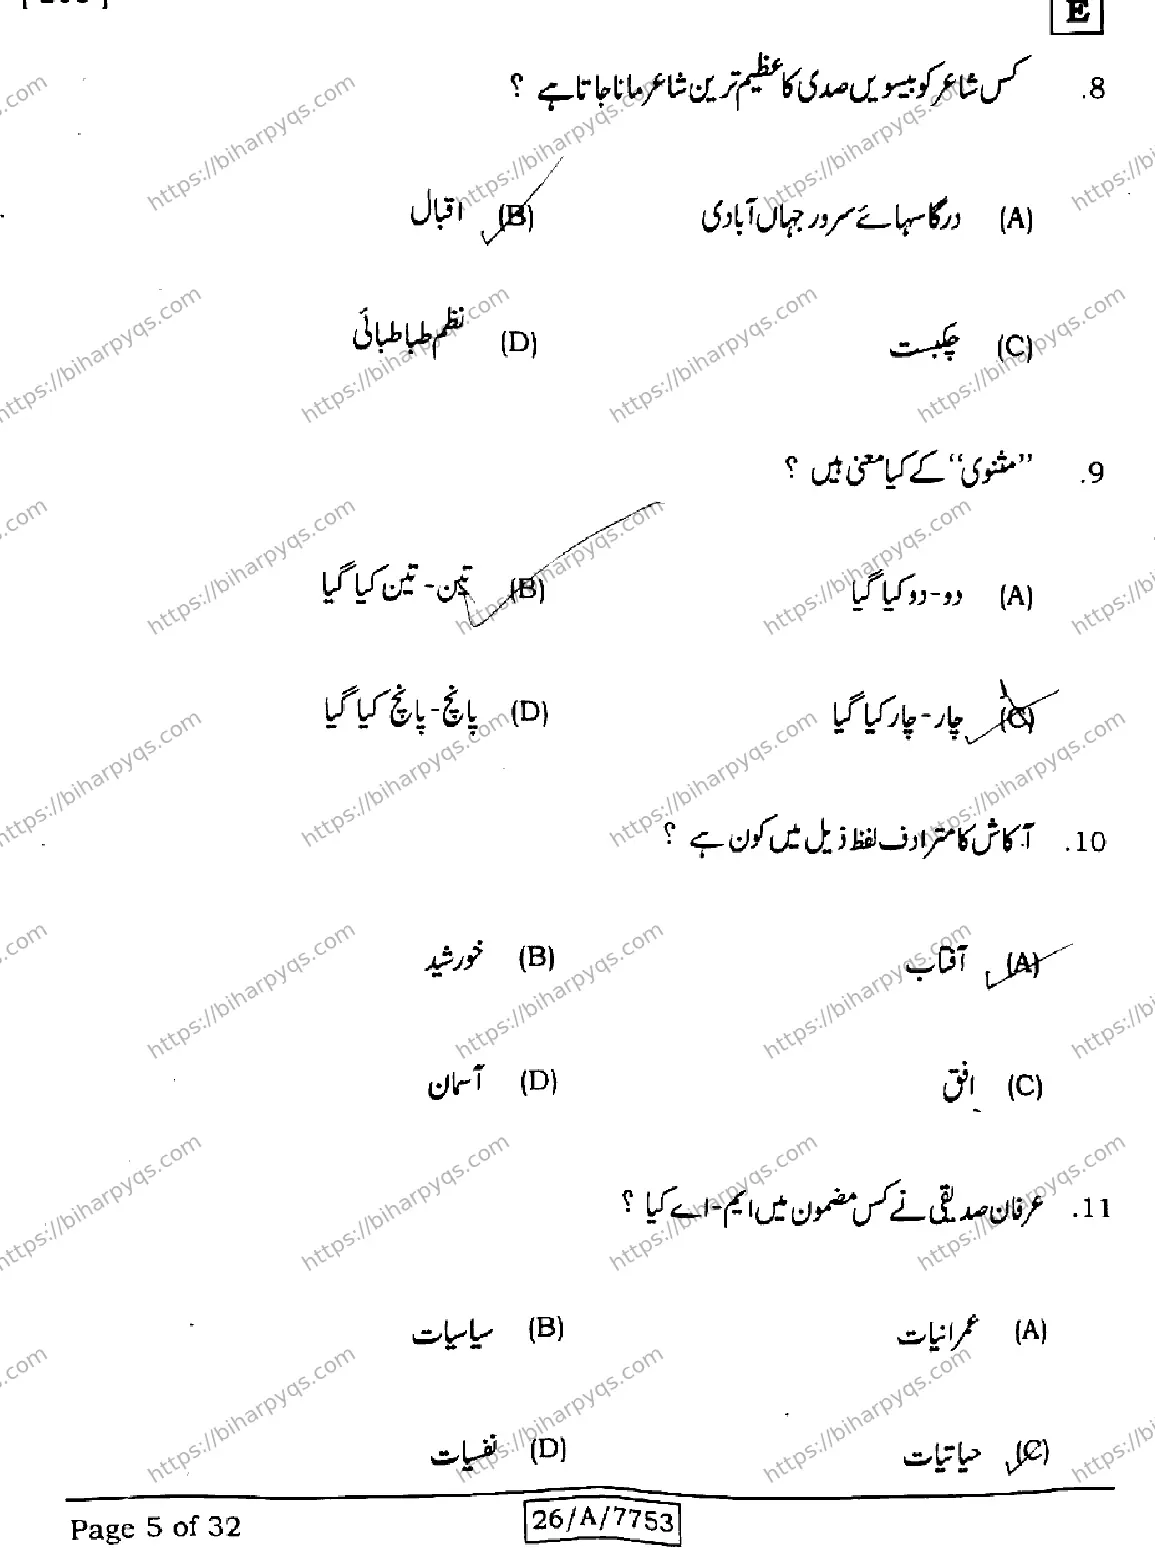 E
8. کس شاعر کو بیسویں صدی کا عظیم ترین شاعر مانا جاتا ہے ؟
(A) درگا سہائے سرور جہاں آبادی (B) اقبال
(C) چکبست (D) نظم طباطبائی
9. ”مثنوی“ کے کیا معنی ہیں ؟
(A) دو - دو کیا گیا (B) تین - تین کیا گیا
(C) چار - چار کیا گیا (D) پانچ - پانچ کیا گیا
10. آکاش کا مترادف لفظ ذیل میں کون ہے ؟
(A) آفتاب (B) خورشید
(C) افق (D) آسمان
11. عرفان صدیقی نے کس مضمون میں ایم - اے کیا ؟
(A) عمرانیات (B) سیاسیات
(C) حیاتیات (D) نفسیات
Page 5 of 32 26/A/7753
https://biharpyqs.com